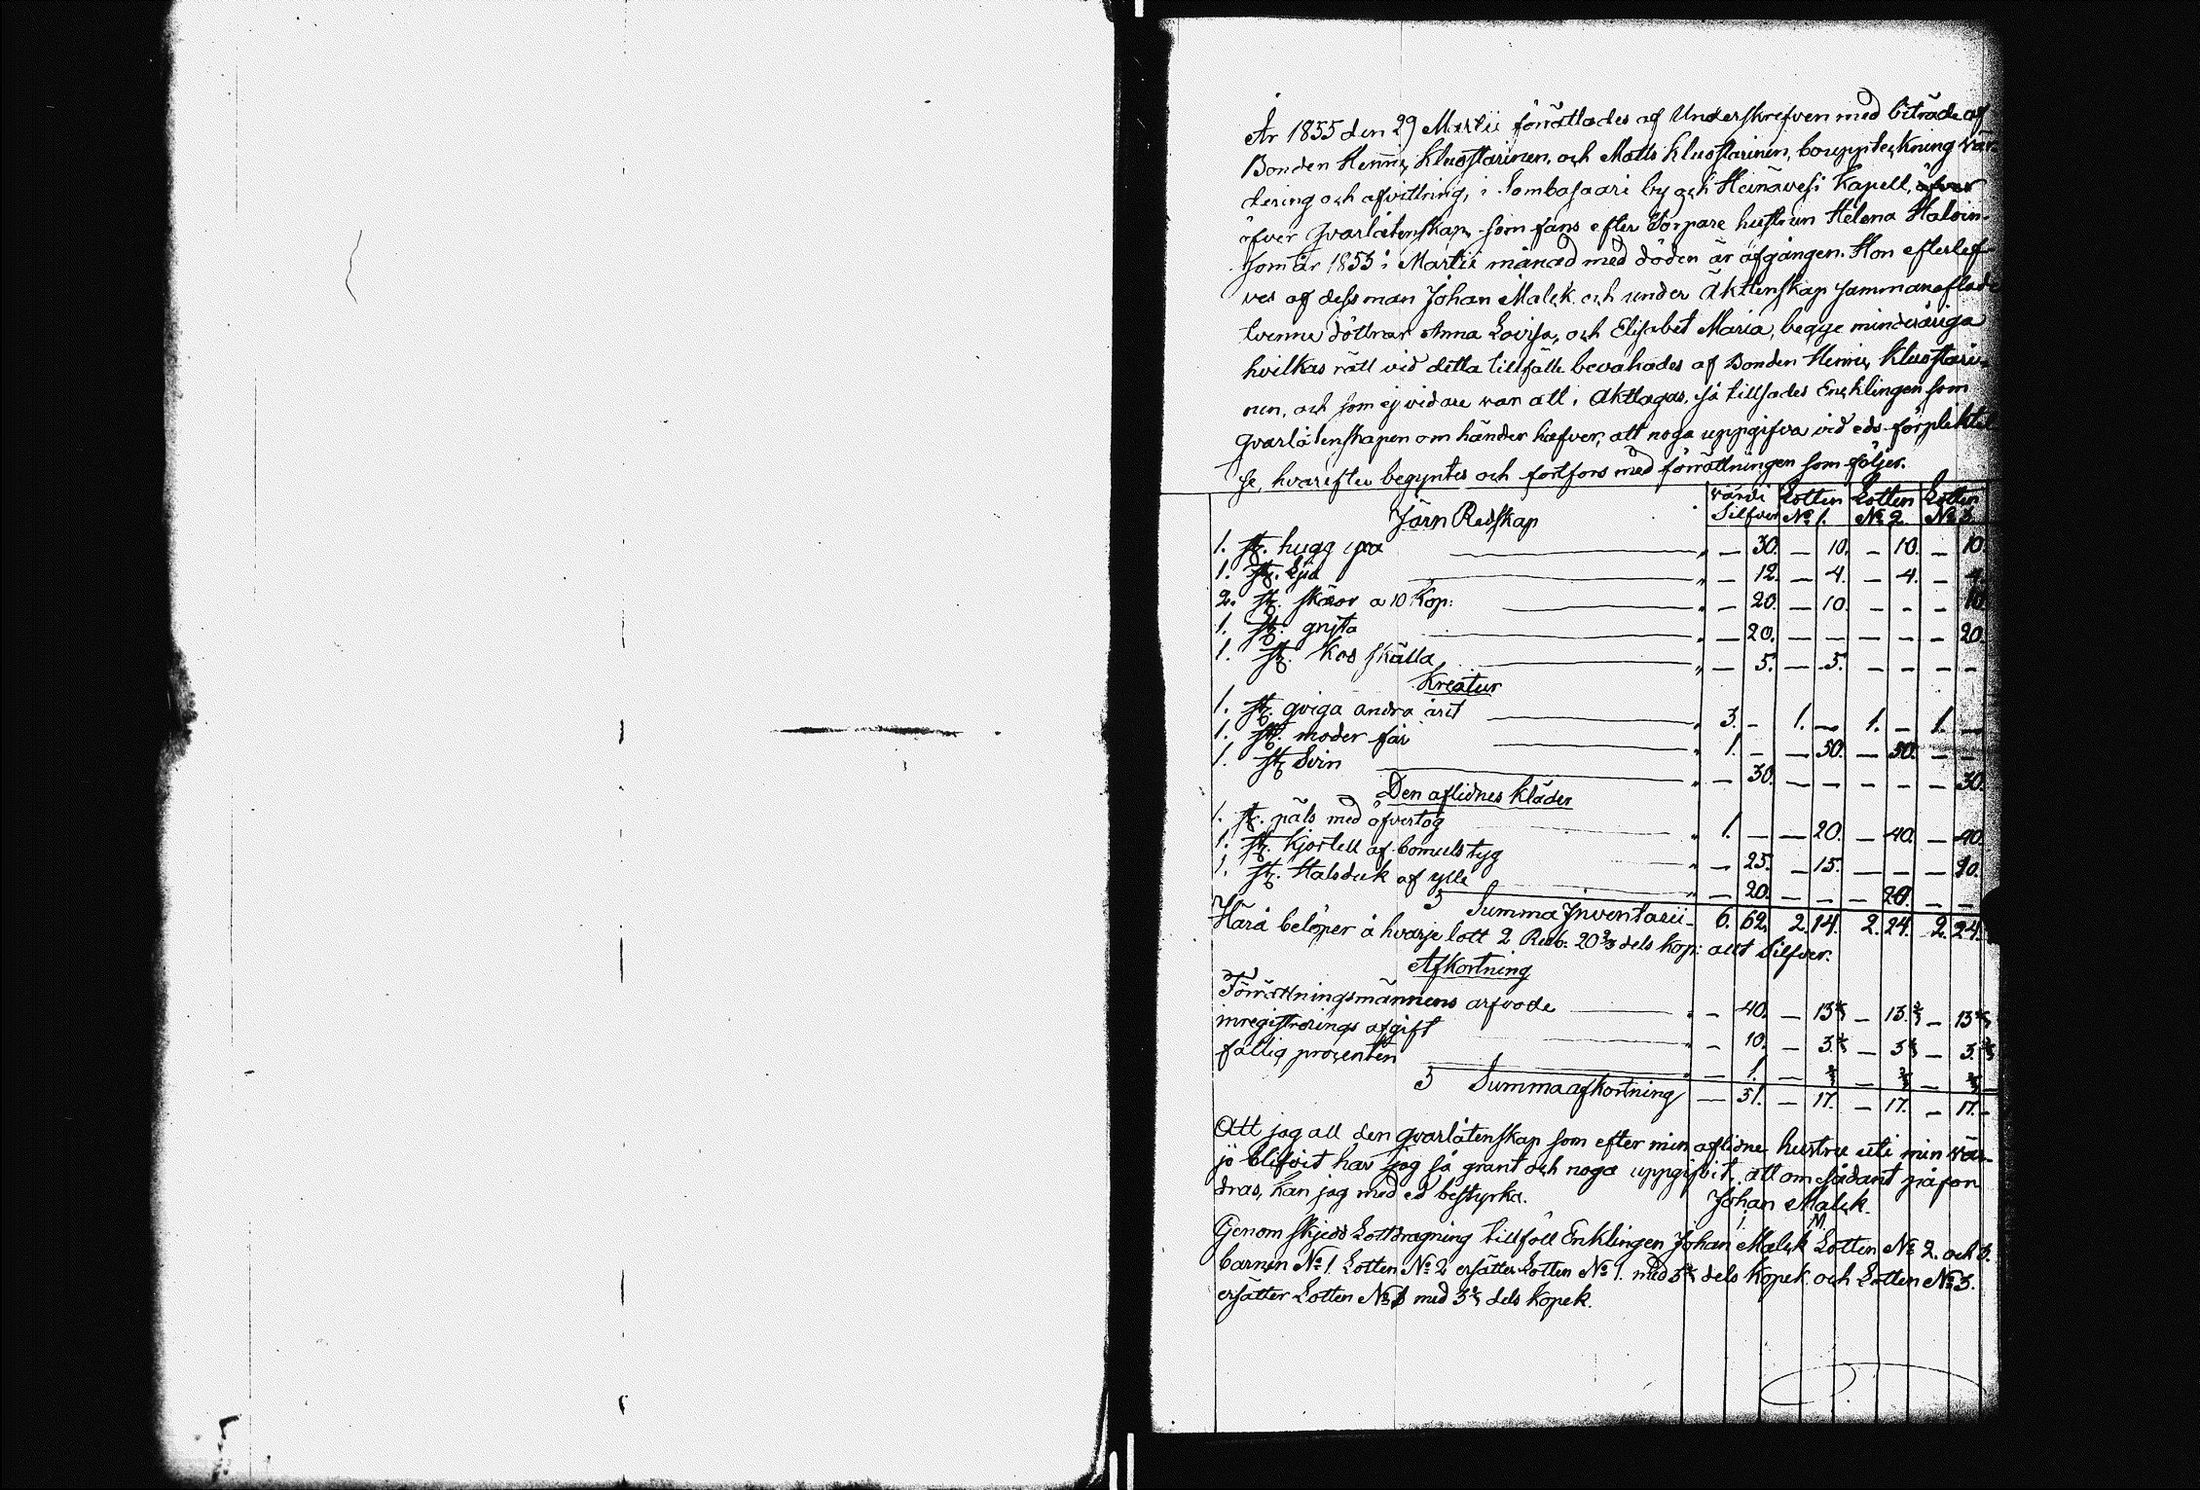 År 1855 den 29 Martii förrättades af Underskrefven med biträde af
Bonden Henric Kluostarinen, och Matts Kluostarinen, bouppteckning vär-
dering och afvittring, i Sombasaari by och Heinävesi Kapell,
öfver qvarlåtenskap, som fans efter Torpare hustrun Helena Haloin.
som År 1855 i Martii månad med döden är afgången. Hon efterlef-
ves af dess man Johan Malck och under Äktenskap sammanaflade
tvenne döttrar Anna Lovisa, och Elisabet Maria, begge minderåriga
hvilkas rätt vid detta tillfälle bevakades af Bonden Henric Kluostari-
nen, och som ej vidare var att i Akttagas, så tillsades Encklingen som
qvarlåtenskapen om händer hafver, att noga uppgifva vid eds förpliktel
se, hvarefter begyntes och fortfors med förrättningen som följer.
Järn Redskap värdi Silfver Lotten № 1. Lotten № 2. Lotten № 3.
1. st. hugg yxa " — 30. — 10. — 10. — 10.
1. st. Ljia " — 12. — 4. — 4. — 4.
2. st. skäror a 10 Kop: " — 20. — 10. — — — 10
1. st. gryta " — 20. — — — — — 20.
1. st. Kos skälla " — 5. — 5. — — — —
Kreatur
1. st. qviga andra årit " 3. — 1. — 1. — 1. —
1. st. moder får " 1. — — 50. — 50. — —
1. st Svin " — 30. — — — — — 30.
Den aflidnes Kläder
1. st. päls med öfvertog " 1. — — 20. — 40. — 40.
1. st. Kjortell af bomulls tyg " — 25. — 15. — — — 10.
1. st. Halsduk af ylle " — 20. — — — 20. — —
Summa Inventarii 6. 62. 2. 14. 2. 24. 2. 24.
Härå belöper å hvarje lott 2 Rub. 20 2/3 dels kop: allt Silfver.
Afkortning
Förrättningsmännens arfvode " — 40. — 13 1/3 — 13 1/3 — 13 1/3
inregistrerings afgift " — 10. — 3 1/3 — 3 1/3 — 3 1/3
fattig procenten " — 1. — 1/3 — 1/3 — 1/3
Summa afkortning — 51. — 17. — 17. — 17.
Att jag all den qvarlåtenskap som efter min aflidne hustru uti min vär-
jo blifvit har jag så grant och noga uppgifvit, att om sådant påfor
dras, kan jag med ed bestyrka. Johan Malck.
Genom skjedd Lottdragning tillföll Enklingen Johan Malck Lotten № 2. och 3.
barnen № 1 Lotten № 2 ersätter Lotten № 1. med 3 1/3 dels Kopek. och Lotten № 3.
ersätter Lotten № 1 med 3 1/3 dels kopek.